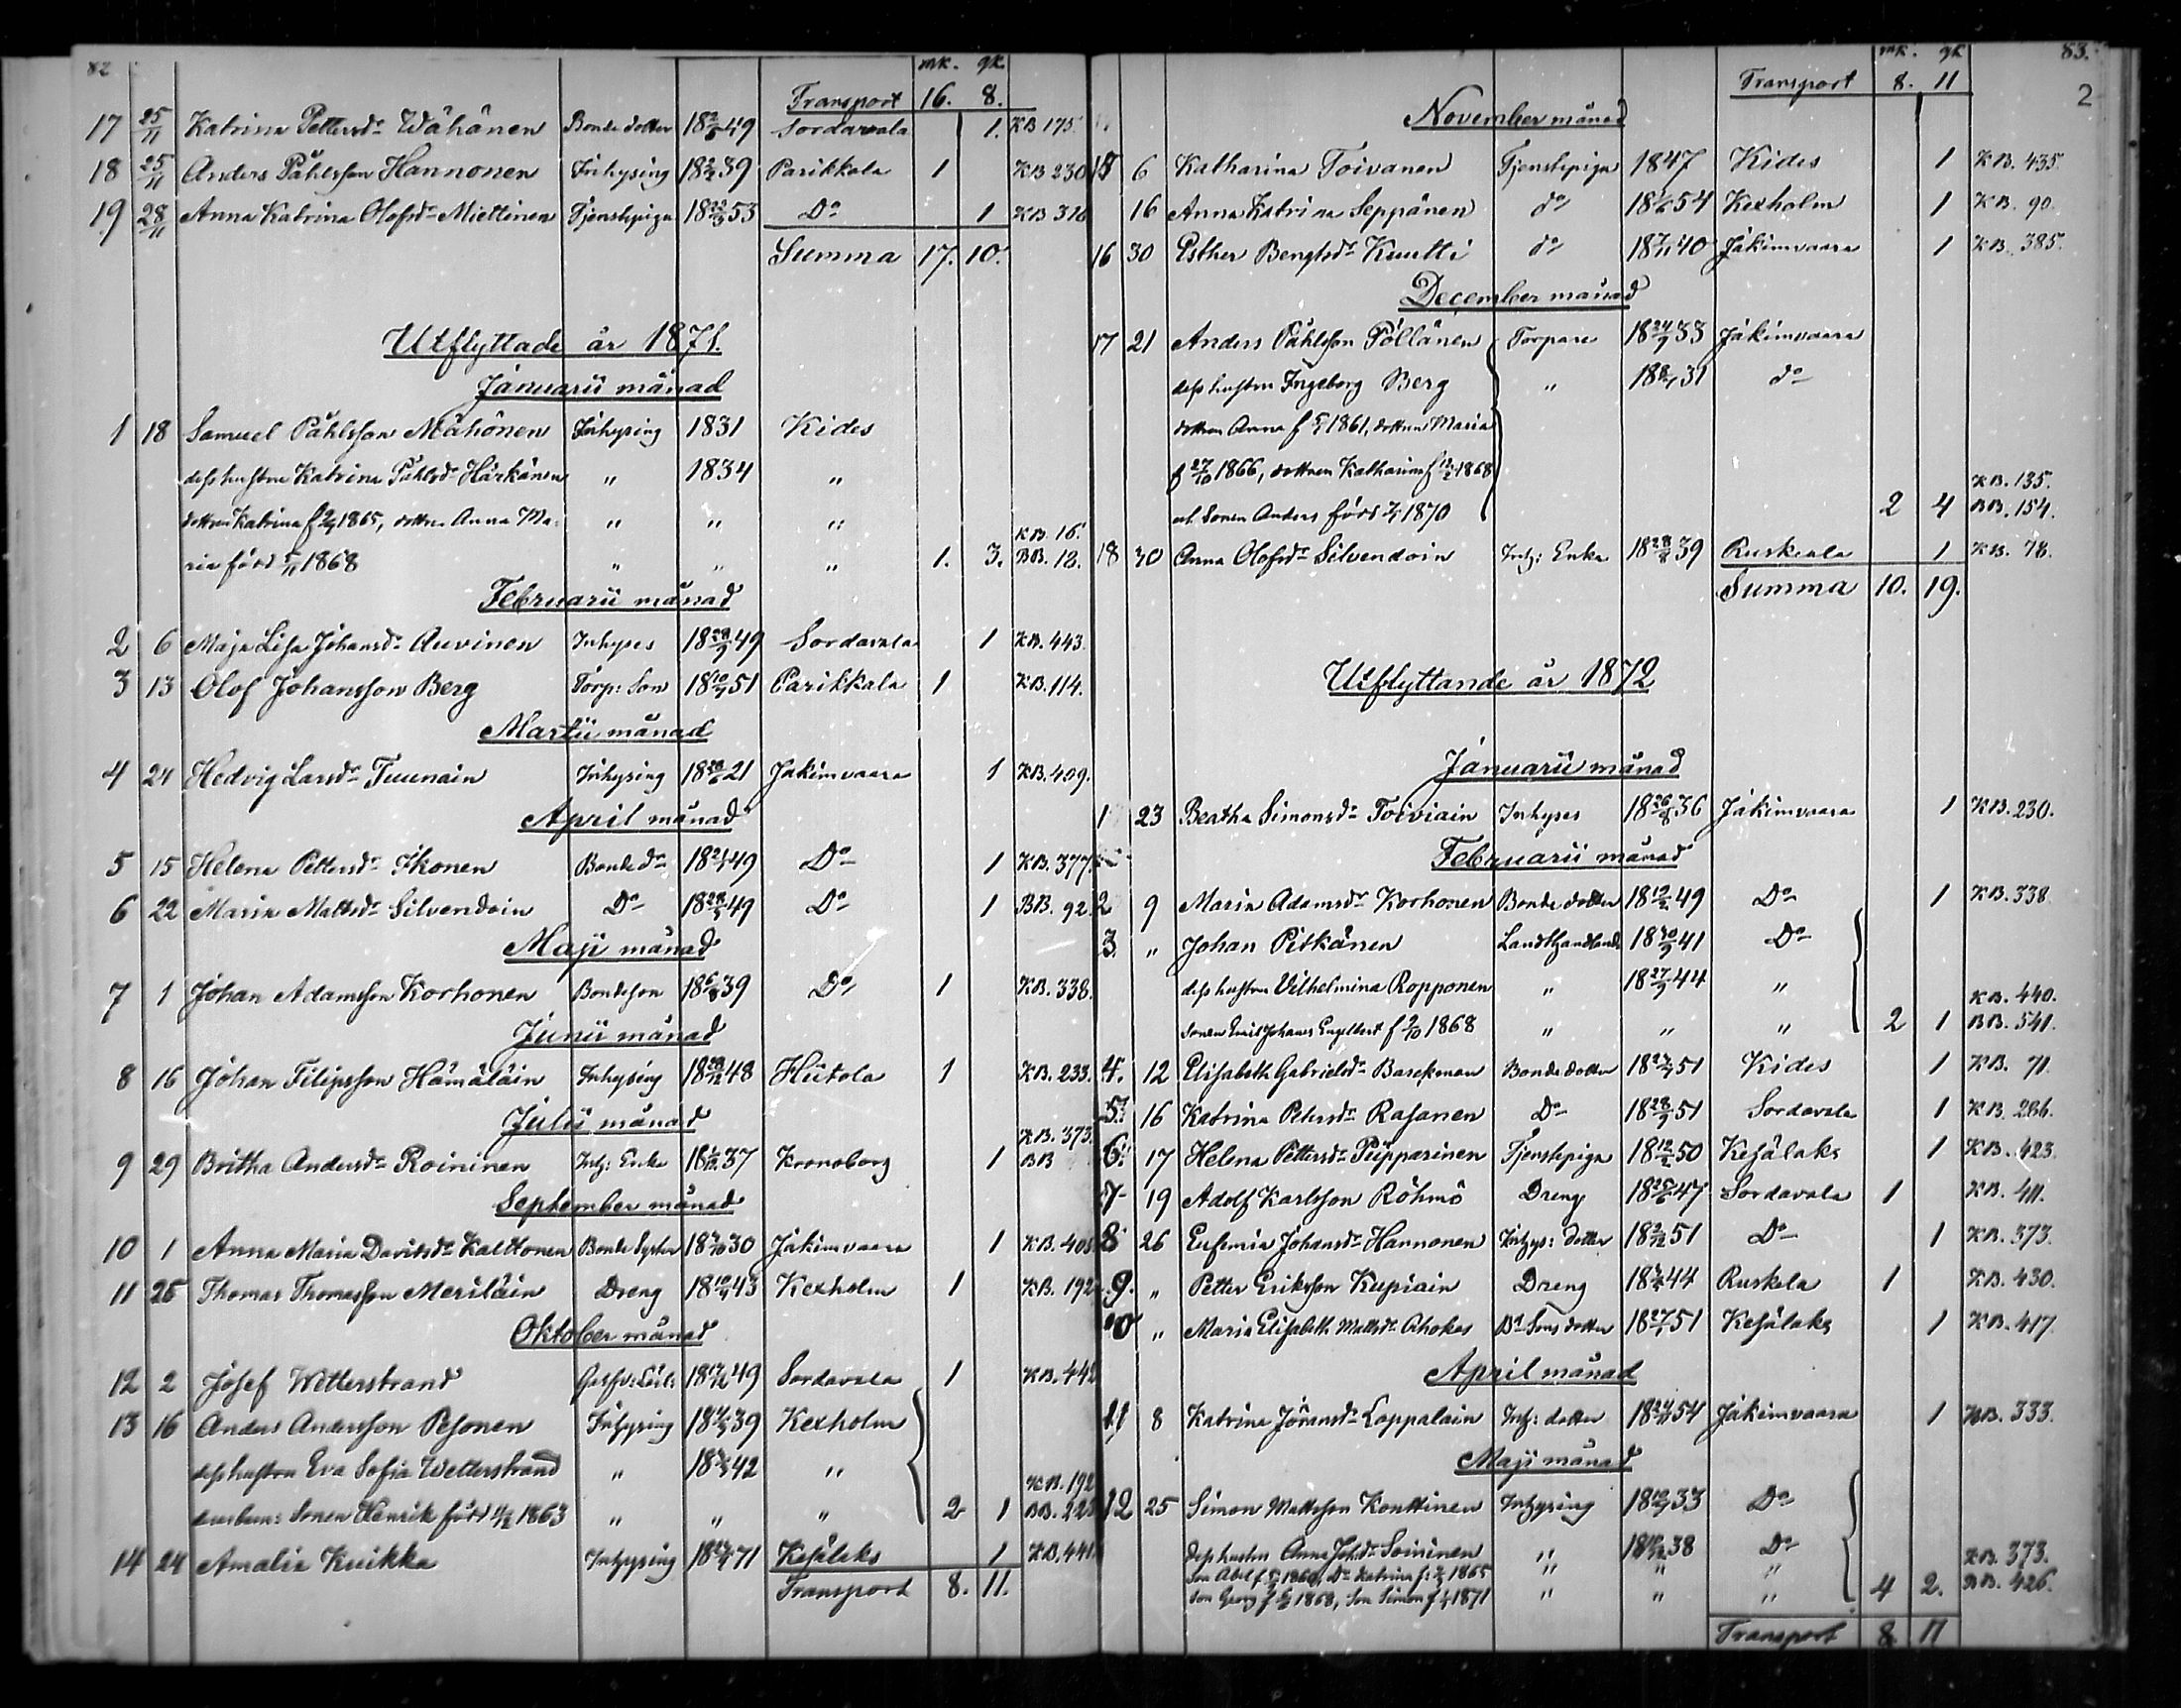 82
mk. qk
Transport 16. 8.
17 25/11 Katrina Pettersdr Wähänen Bonde dotter 1849 Sordavala 1. KB 175.
18 25/11 Anders Påhlsson Hannonen Inhysing 1839 Parikkala 1 KB 230
19 28/11 Anna Katrina Olofsdr Miettinen Tjenstepiga 1853 Do 1 KB 316
Summa 17. 10.
Utflyttade år 1871.
Januarii månad
1 18 Samuel Påhlsson Mähönen Inhysing 1831 Kides
dess hustru Katrina Påhlsdr Härkänen " 1834 "
dottren Katrina f 1865, dottren Anna Ma- " " " KB. 16.
ria född 5/11 1868 " " " 1. 3. BB. 12.
Februarii månad
2 6 Maja Lisa Johansdr Auvinen Inhyses 1849 Sordavala 1 KB. 443.
3 13 Olof Johansson Berg Torp: Son 1851 Parikkala 1 KB. 114.
Martii månad
4 24 Hedvig Larsdr Tuunain Inhysing 1821 Jakimvaara 1 KB. 409.
April månad
5 15 Helena Pettersdr Ikonen Bonde dr 1849 Do 1 KB. 377.
6 22 Maria Mattsdr Silvendoin Do 1849 Do 1 BB. 92.
Maji månad
7 1 Johan Adamsson Korhonen Bondeson 1839 Do 1 KB. 338.
Junii månad
8 16 Johan Filipsson Hämäläin Inhysing 1848 Hiitola 1 KB. 233.
Julii månad
KB. 373.
9 29 Britha Andersdr Roininen Inh: Enka 1837 Kronoborg 1 BB
September månad
10 1 Anna Maria Davidsdr Kalttonen Bonde Syster 1830 Jakimvaara 1 KB. 408
11 25 Thomas Thomasson Meriläin Dreng 1843 Kexholm 1 KB. 192
Oktober månad
12 2 Josef Wetterstrand 1849 Sordavala 1 KB. 442
13 16 Anders Andersson Pesonen Inhysing 1839 Kexholm
dess hustru Eva Sofia Wetterstrand " 1842 " KB. 192
Sonen Henrik född 1863 " " " 2 1 BB. 223
14 24 Amalia Kuikka Inhysing 1871 Kesälaks 1 KB. 441.
Transport 8. 11.
83.
2
mk. qk
Transport 8. 11
November månad
15 6 Katharina Toivanen Tjenstepiga 1847 Kides 1 KB. 435.
16 Anna Katrina Seppänen do 1854 Kexholm 1 KB. 90.
16 30 Esther Bengtsdr Kuutti do 1840 Jakimvaara 1 KB. 385.
December månad
17 21 Anders Påhlsson Pöllänen Torpare 1833 Jakimvaara
dess hustru Ingeborg Berg " 1831 do
dottren Anna f 1861, dottren Maria
f 27/10 1866, dottren Katharina f 1868 KB. 135.
och Sonen Anders född 1870 2 4 BB. 154.
18 30 Anna Olofsdr Silvendoin Inh: Enka 1839 Ruskeala 1 KB. 78.
Summa 10. 19.
Utflyttande år 1872
Januarii månad
1 23 Beatha Simonsdr Toiviain Inhyses 1836 Jakimvaara 1 KB. 230.
Februarii månad
2 9 Maria Adamsdr Korhonen Bonde dotter 1849 Do 1 KB. 338.
3. " Johan Pitkänen Landthandlande 1841 Do
dess hustru Vilhelmina Ropponen " 1844 " KB. 440.
sonen Emil Johanes Engelbert f 1868 " " " 2 1 BB. 541.
4. 12 Elisabeth Gabrielsdr Bonde dotter 1851 Kides 1 KB. 71.
5. 16 Katrina Petersdr Rasanen Do 1851 Sordavala 1 KB. 286.
6. 17 Helena Pettersdr Piipparinen Tjenstepiga 1850 Kesälaks 1 KB. 423.
7 19 Adolf Karlsson Röhmö Dreng 1847 Sordavala 1 KB. 411.
8 26 Eufemia Johansdr Hannonen Inhys: dotter 1851 Do 1 KB. 373.
9. " Petter Eriksson Kupiain Dreng 1844 Ruskla 1 KB. 430.
10 " Maria Elisabeth Mattsdr Ahokas Bd Sons dotter 1851 Kesälaks 1 KB. 417.
April månad
11 8 Katrina Göransdr Loppalain Inh: dotter 1854 Jakimvaara 1 KB. 333.
Maji månad
12 25 Simon Mattsson Konttinen Inhysing 1833 Do
dess hustru Anna Johsdr Soininen " 1838 Do KB. 373.
Son Abel f 1860, Dr Katrina f: 1865 " " " 4 2. BB. 426.
Son Georg f 1868, Son Simon f 1871 " " "
Transport 8 11